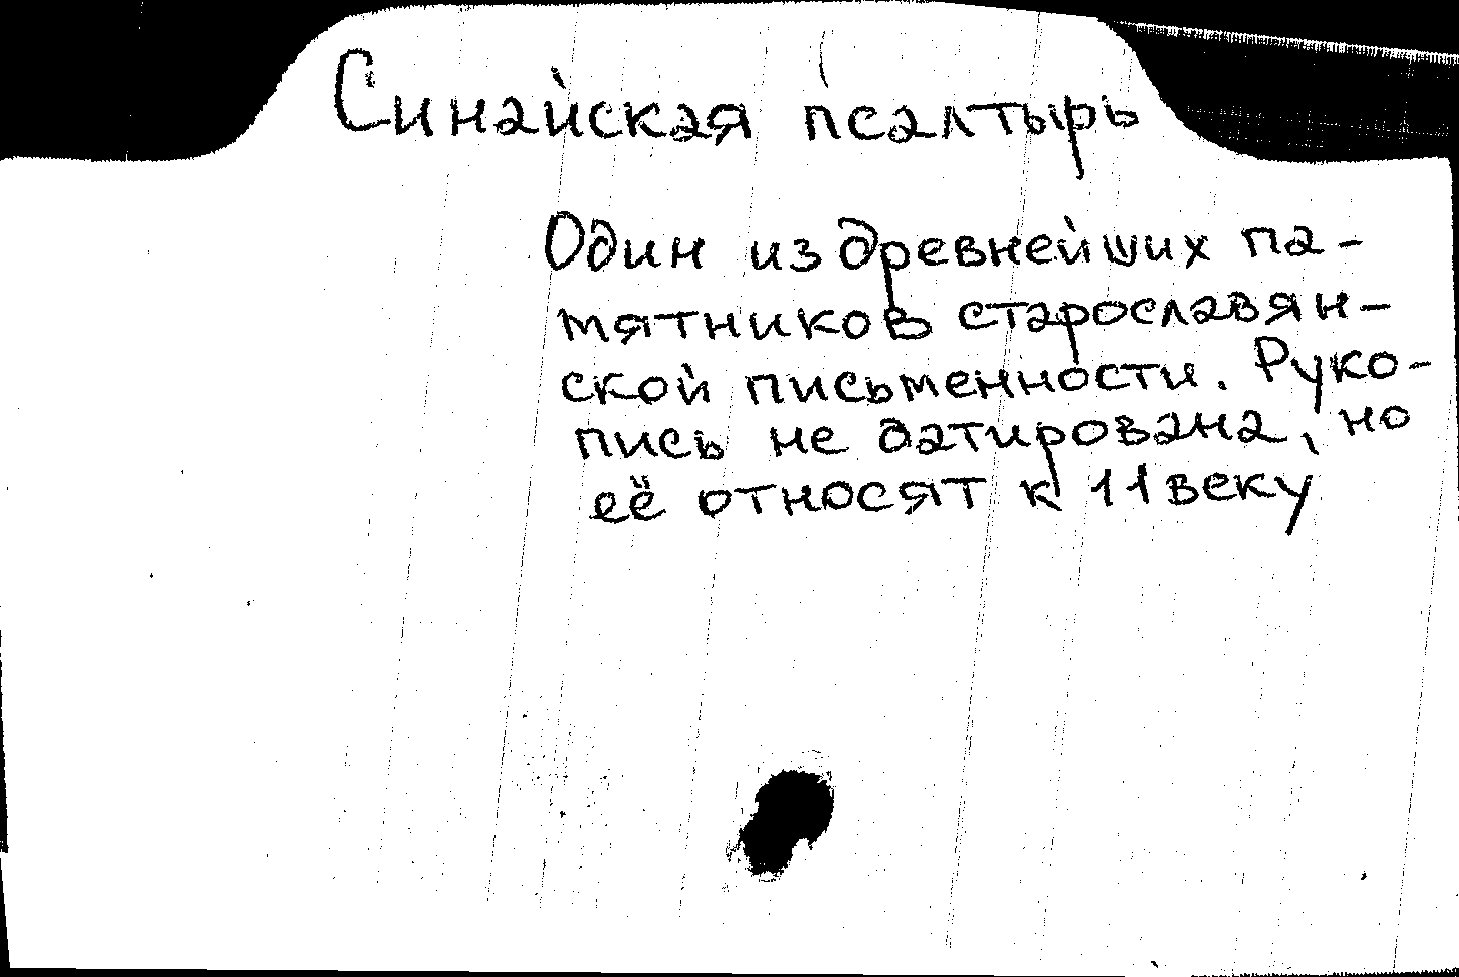 Синайская псалтырь
Один из древнейших па-
мятников старославян-
ской письменности. Руко-
пись не датирована, но
её относят к 11 веку